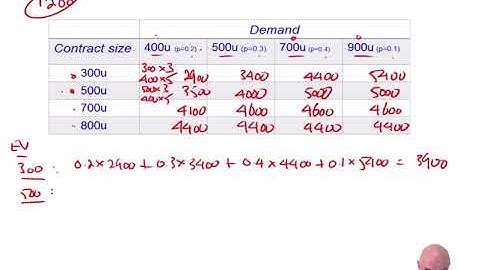 1200
Demand
Contract size 400u (p=0.2) 500u (p=0.3) 700u (p=0.4) 900u (p=0.1)
300u 300×3 400×5 2900 3400 4400 5400
500u 500×3 400×5 3500 4000 5000 5000
700u 4100 4600 4600 4600
800u 4400 4400 4400 4400
EV
300 : 0.2×2900 + 0.3×3400 + 0.4×4400 + 0.1×5400 = 3900
500 :